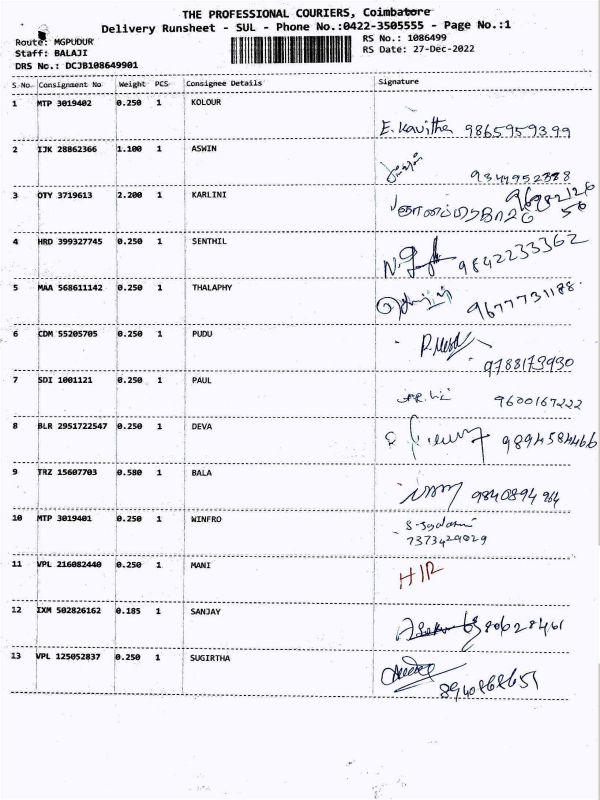 THE PROFESSIONAL COURIERS, Coimbatore
Delivery Runsheet - SUL - Phone No.:0422-3505555 - Page No.:1
Route: MGPUDUR
RS No.: 1086499
Staff: BALAJI
RS Date: 27-Dec-2022
DRS No.: DCJB108649901
S No. Consignment No Weight PCS Consignee Details Signature
1 MTP 3019402 0.250 1 KOLOUR
E. Kavitha 9865959399
2 IJK 28862366 1.100 1 ASWIN
9344952388
3 OTY 3719613 2.200 1 KARLINI
4 HRD 399327745 0.250 1 SENTHIL
9842233362
5 MAA 568611142 0.250 1 THALAPHY
9677731188
6 CDM 55205705 0.250 1 PUDU
9788179930
7 SDI 1001121 0.250 1 PAUL
9600167222
8 BLR 2951722547 0.250 1 DEVA
9894584466
9 TRZ 15607703 0.580 1 BALA
9840894964
10 MTP 3019401 0.250 1 WINFRO
7373429029
11 VPL 216082440 0.250 1 MANI
12 IXM 502826162 0.185 1 SANJAY
13 VPL 125052837 0.250 1 SUGIRTHA